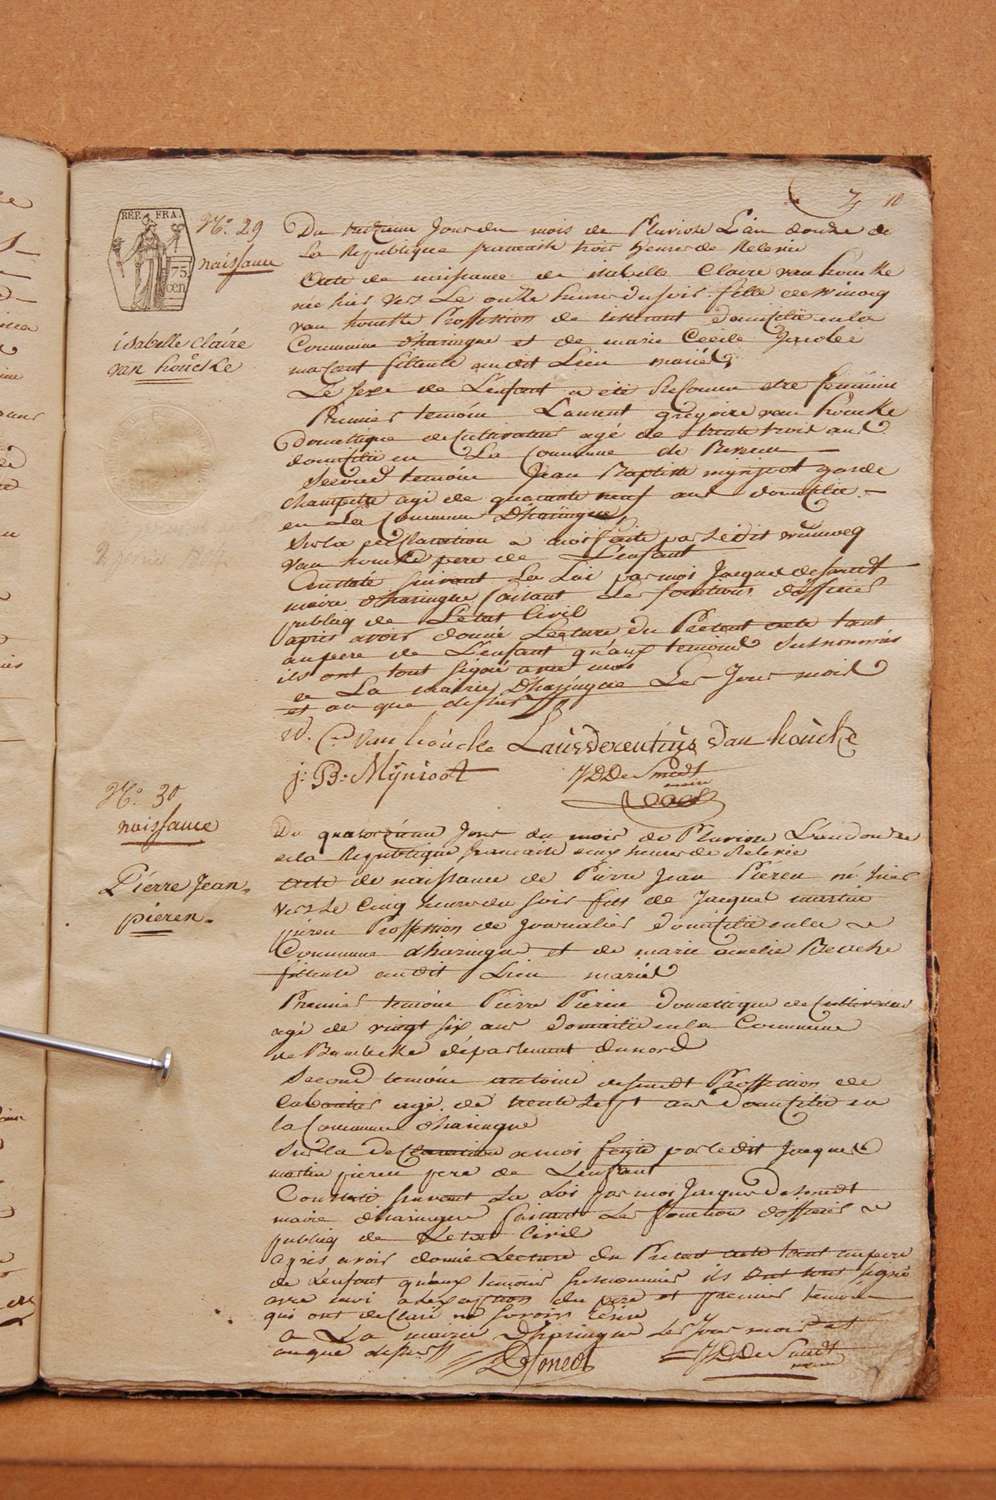 10
REP. FRA.
75
cen
N.º 29
naissance
isabelle Claire
van houcke
Du treizieme Jour du mois de Pluviose L'an douze de
La Republique francaise trois heures de Relevée
Acte de naissance de isabelle Claire van houcke
née hier vers Le onze heures du soir fille de winocq
van houcke Proffession de tisserant Domicilié en la
Commune d'haringue et de marie Cecile
fileuse au dit Lieu mariés
Le sexe de L'enfant a eté Reconnu etre feminin
Premier temoin Laurent gregoire van houcke
Domestique de Cultivateur agé de trente trois ans
domicilié en La Commune de
Second temoin Jean Baptiste mynioot garde
champetre agé de quarante neuf ans domicilié
en La Commune D'haringue
Sur la declaration a moi faite par Ledit winocq
van houcke pere de L'enfant
Constaté suivant La Loi par moi Jacques desmedt
maire d'haringue faisant Les fonctions d'officier
publicq de L'etat Civil
apres avoir donné Lecture du Present acte tant
au pere de L'enfant qu'aux temoins susnommés
ils ont tout signé avec moi
a La mairie D'haringue Les Jour mois
et an que dessus
W. C. van houcke Laurderentius van houcke
j: B: Mÿnioot
J D De Smedt
maire
N.º 30
naissance
Pierre Jean
pieren
Du quatorzieme Jour du mois de Pluviose L'an douze
de la Republique francaise deux heures de Relevée
acte de naissance de Pierre Jean Pieren né hier
vers Le Cinq heures du soir fils de Jacques martin
pieren Proffession de Journalier Domicilié en la
Commune d'haringue et de marie amelie Beucke
fileuse au dit Lieu mariés
Premier temoin Pierre Pieren Domestique de Cultivateur
agé de vingt six ans domicilié en la Commune
de Bambeke département du nord
Second temoin antoine desmedt Proffession de
Cabaretier agé de trente sept ans Domicilié en
la Commune d'haringue
Sur la declaration a moi faite par le dit Jacques
martin pieren pere de L'enfant
Constaté suivant La Loi par moi Jacques Desmedt
maire d'haringue faisant Les fonction d'officier
publicq de L'etat Civil
apres avoir donné Lecture du Present acte tant au pere
de L'enfant qu'aux temoins susnommés ils ont tout signé
avec moi a l'exception du pere et premier temoin
qui ont declaré ne savoir ecrire
a La mairie D'haringue Les Jour mois et
an que dessus
D Smedt
J D De Smedt
maire